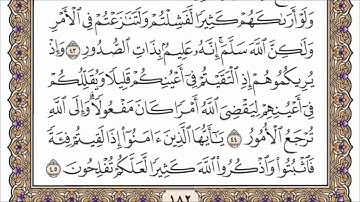 وَلَوْ أَرَىٰكَهُمْ كَثِيرًا لَّفَشِلْتُمْ وَلَتَنَٰزَعْتُمْ فِى ٱلْأَمْرِ
وَلَٰكِنَّ ٱللَّهَ سَلَّمَ إِنَّهُۥ عَلِيمٌۢ بِذَاتِ ٱلصُّدُورِ ٤٣ وَإِذْ
يُرِيكُمُوهُمْ إِذِ ٱلْتَقَيْتُمْ فِىٓ أَعْيُنِكُمْ قَلِيلًا وَيُقَلِّلُكُمْ
فِىٓ أَعْيُنِهِمْ لِيَقْضِىَ ٱللَّهُ أَمْرًا كَانَ مَفْعُولًا وَإِلَى ٱللَّهِ
تُرْجَعُ ٱلْأُمُورُ ٤٤ يَٰٓأَيُّهَا ٱلَّذِينَ ءَامَنُوٓا۟ إِذَا لَقِيتُمْ فِئَةً
فَٱثْبُتُوا۟ وَٱذْكُرُوا۟ ٱللَّهَ كَثِيرًا لَّعَلَّكُمْ تُفْلِحُونَ ٤٥
١٨٢